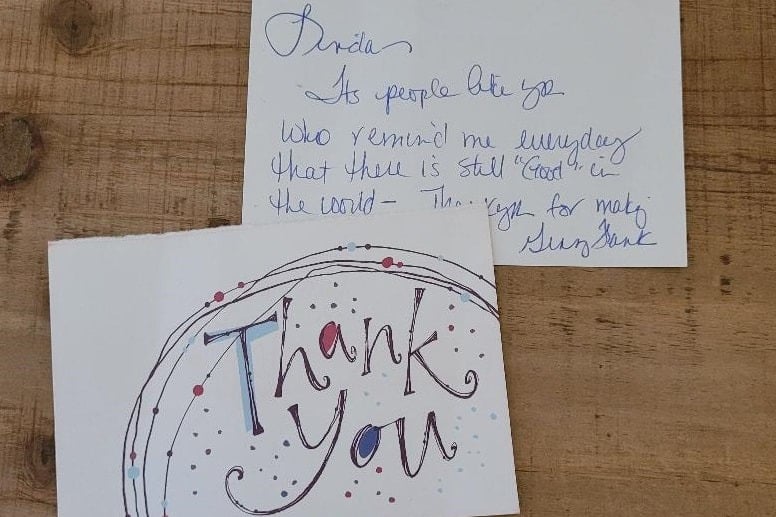 Linda
Its people like you
who remind me everyday
that there is still "Good" in
the world - Thank you for making
Thank
you